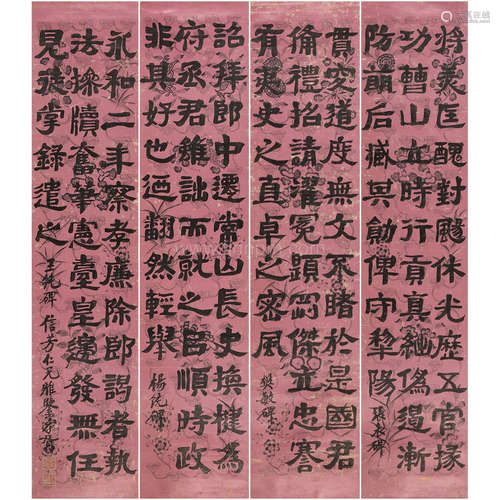 將美匡醜對飈休光歷五官掾
功曹山在時行貢真絀偽遏漸
防萌后臧其勛俾守犂陽 張表碑
貫究道度無文不睹於是國君
備禮招請濯冕題剛傑立忠謇
有夷史之直卓之密風 樊敏碑
詔拜郎中遷常山長史換楗為
府丞君雖詘而就之以順時政
非其好也迺翻然輕舉 楊統碑
永和二年察孝廉除郎謁者執
法操牘奮筆憲臺皇邊發無任
見拔掌錄遣之 王純碑 信芳仁兄雅鑒